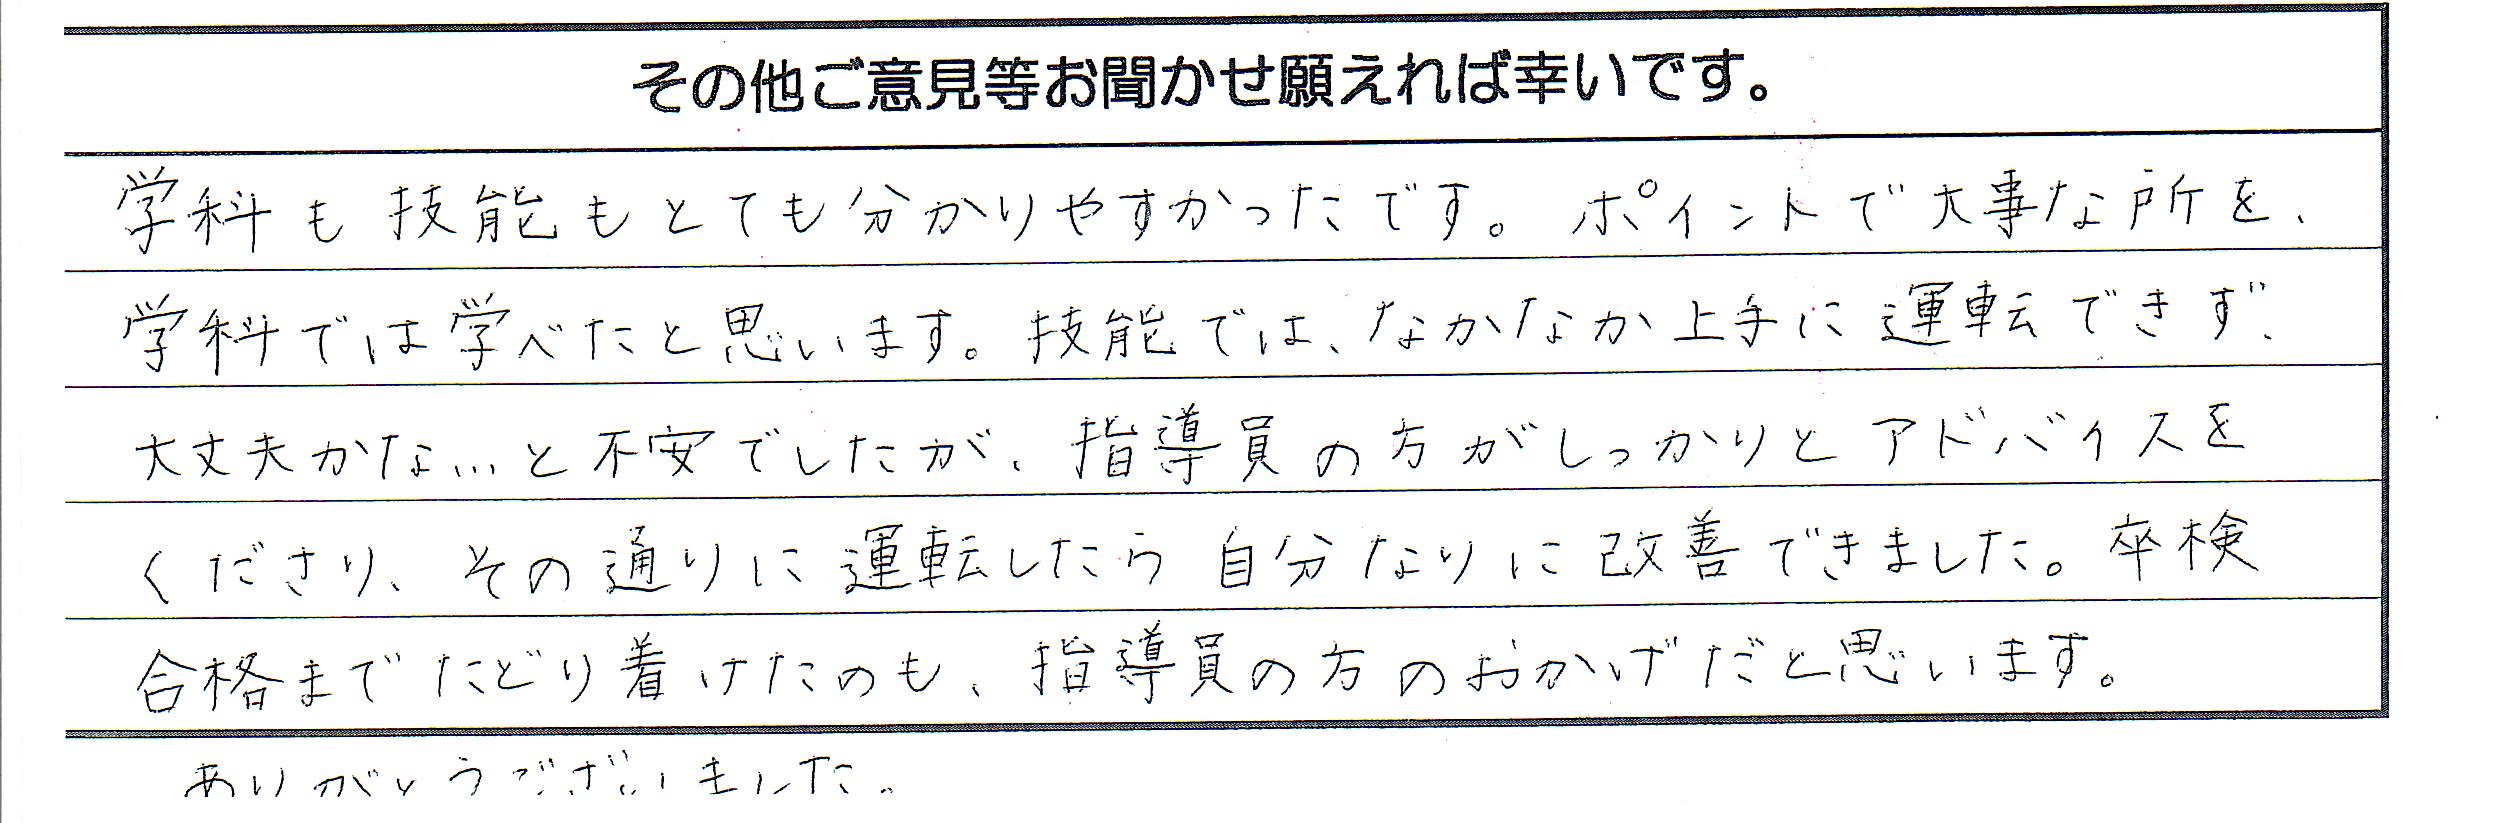 その他ご意見等お聞かせ願えれば幸いです。
学科も技能もとても分かりやすかったです。ポイントで大事な所を、
学科では学べたと思います。技能では、なかなか上手に運転できず、
大丈夫かな…と不安でしたが、指導員の方がしっかりとアドバイスを
くださり、その通りに運転したら自分なりに改善できました。卒検
合格までたどり着けたのも、指導員の方のおかげだと思います。
ありがとうございました。